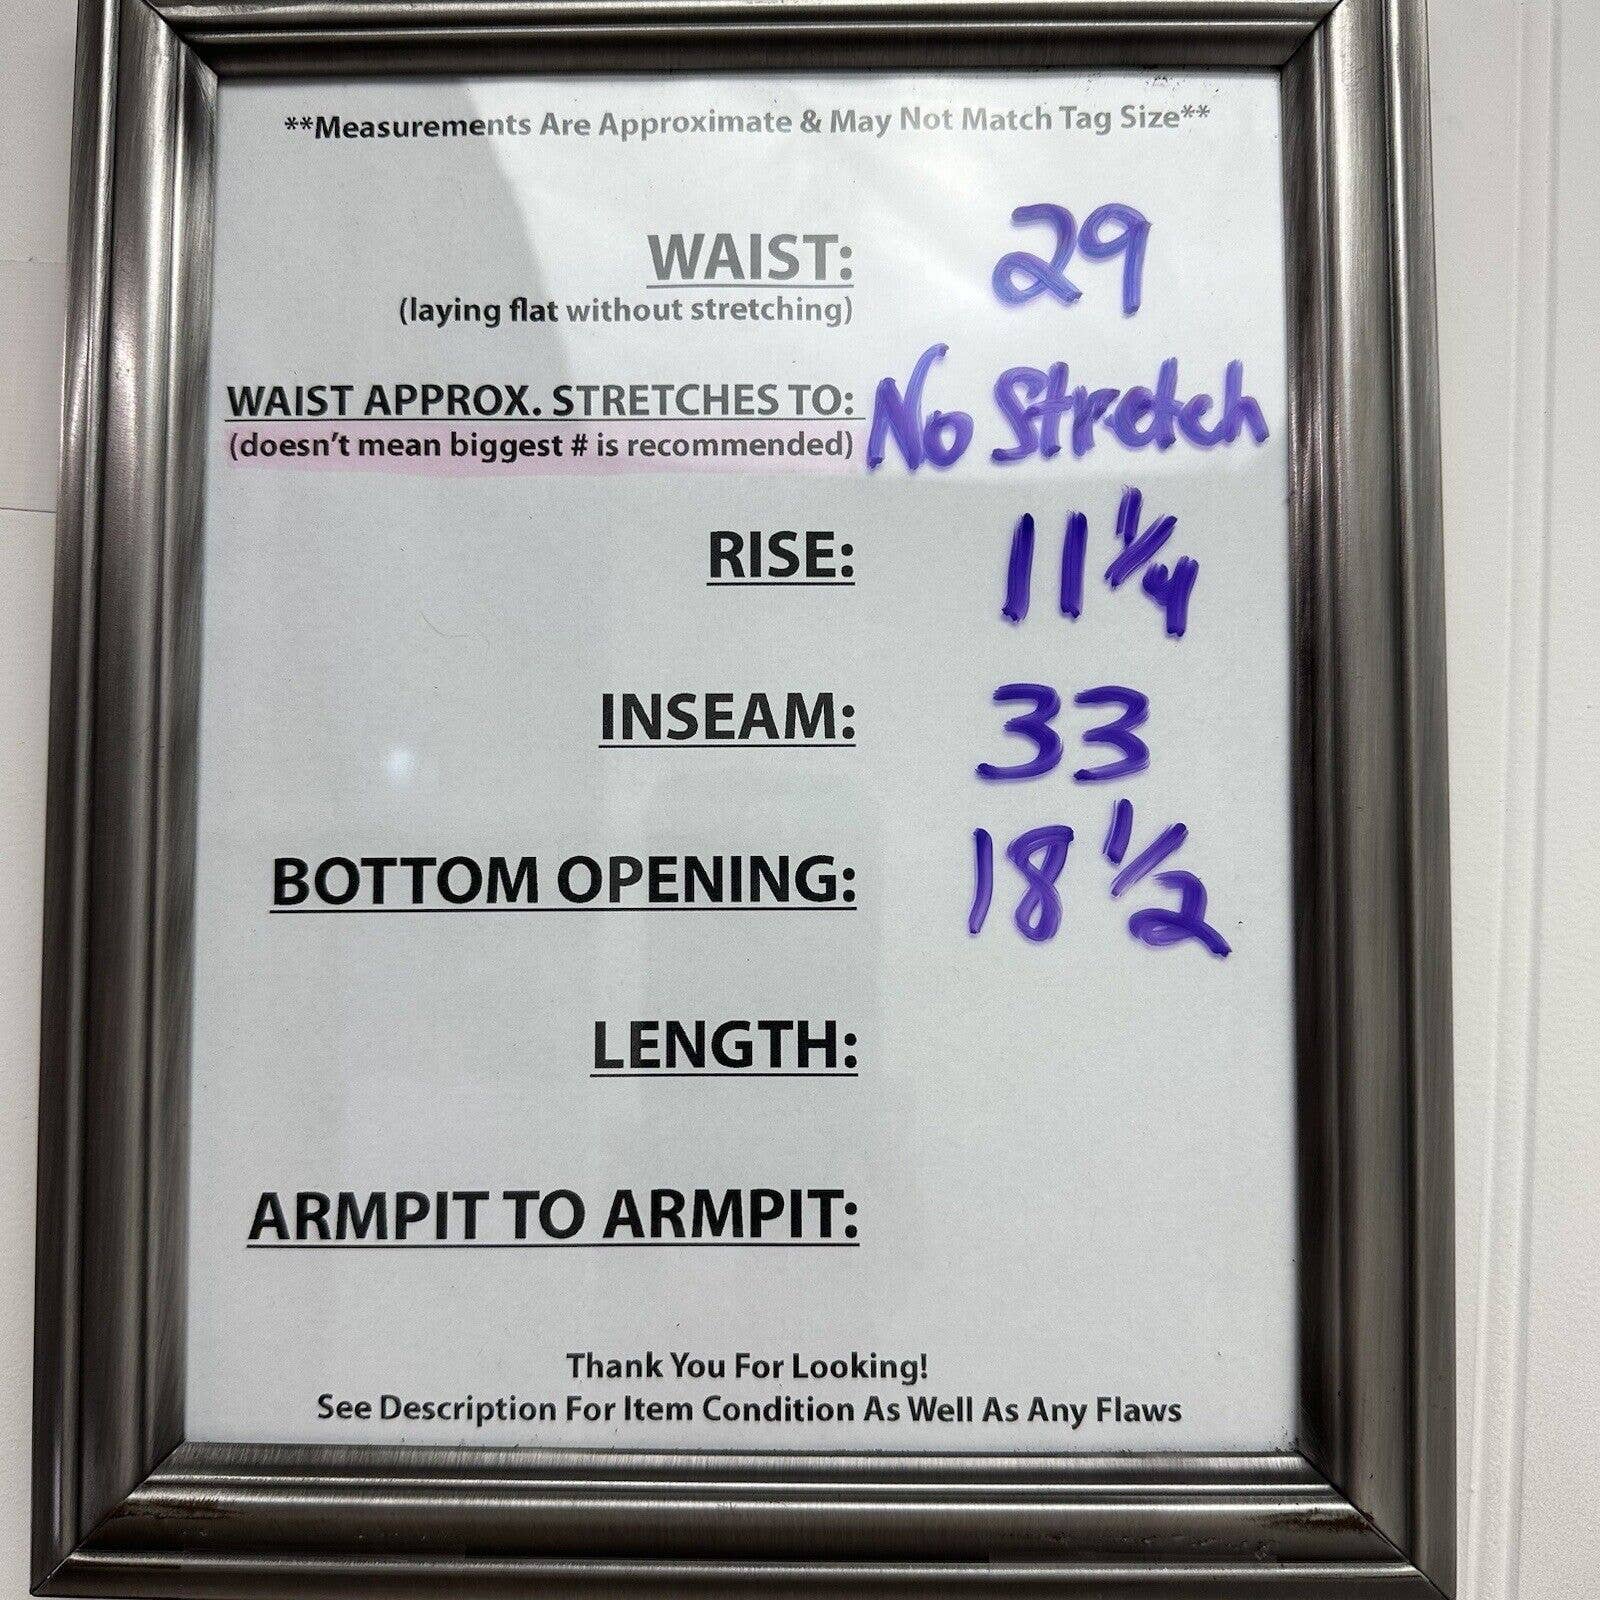 **Measurements Are Approximate & May Not Match Tag Size**
WAIST: 29
(laying flat without stretching)
WAIST APPROX. STRETCHES TO: No Stretch
(doesn't mean biggest # is recommended)
RISE: 11 1/4
INSEAM: 33
BOTTOM OPENING: 18 1/2
LENGTH:
ARMPIT TO ARMPIT:
Thank You For Looking!
See Description For Item Condition As Well As Any Flaws